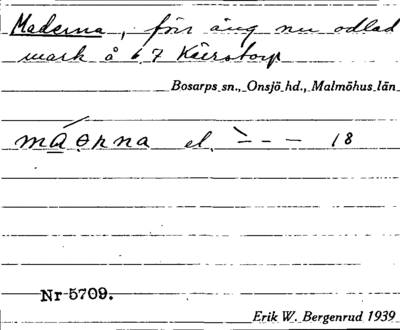 Maderna, förr äng nu odlad
mark å 6 7 Kärstorp
Bosarps sn., Onsjö hd., Malmöhus län
el. \ – – – 18
Nr 5709.
Erik W. Bergenrud 1939